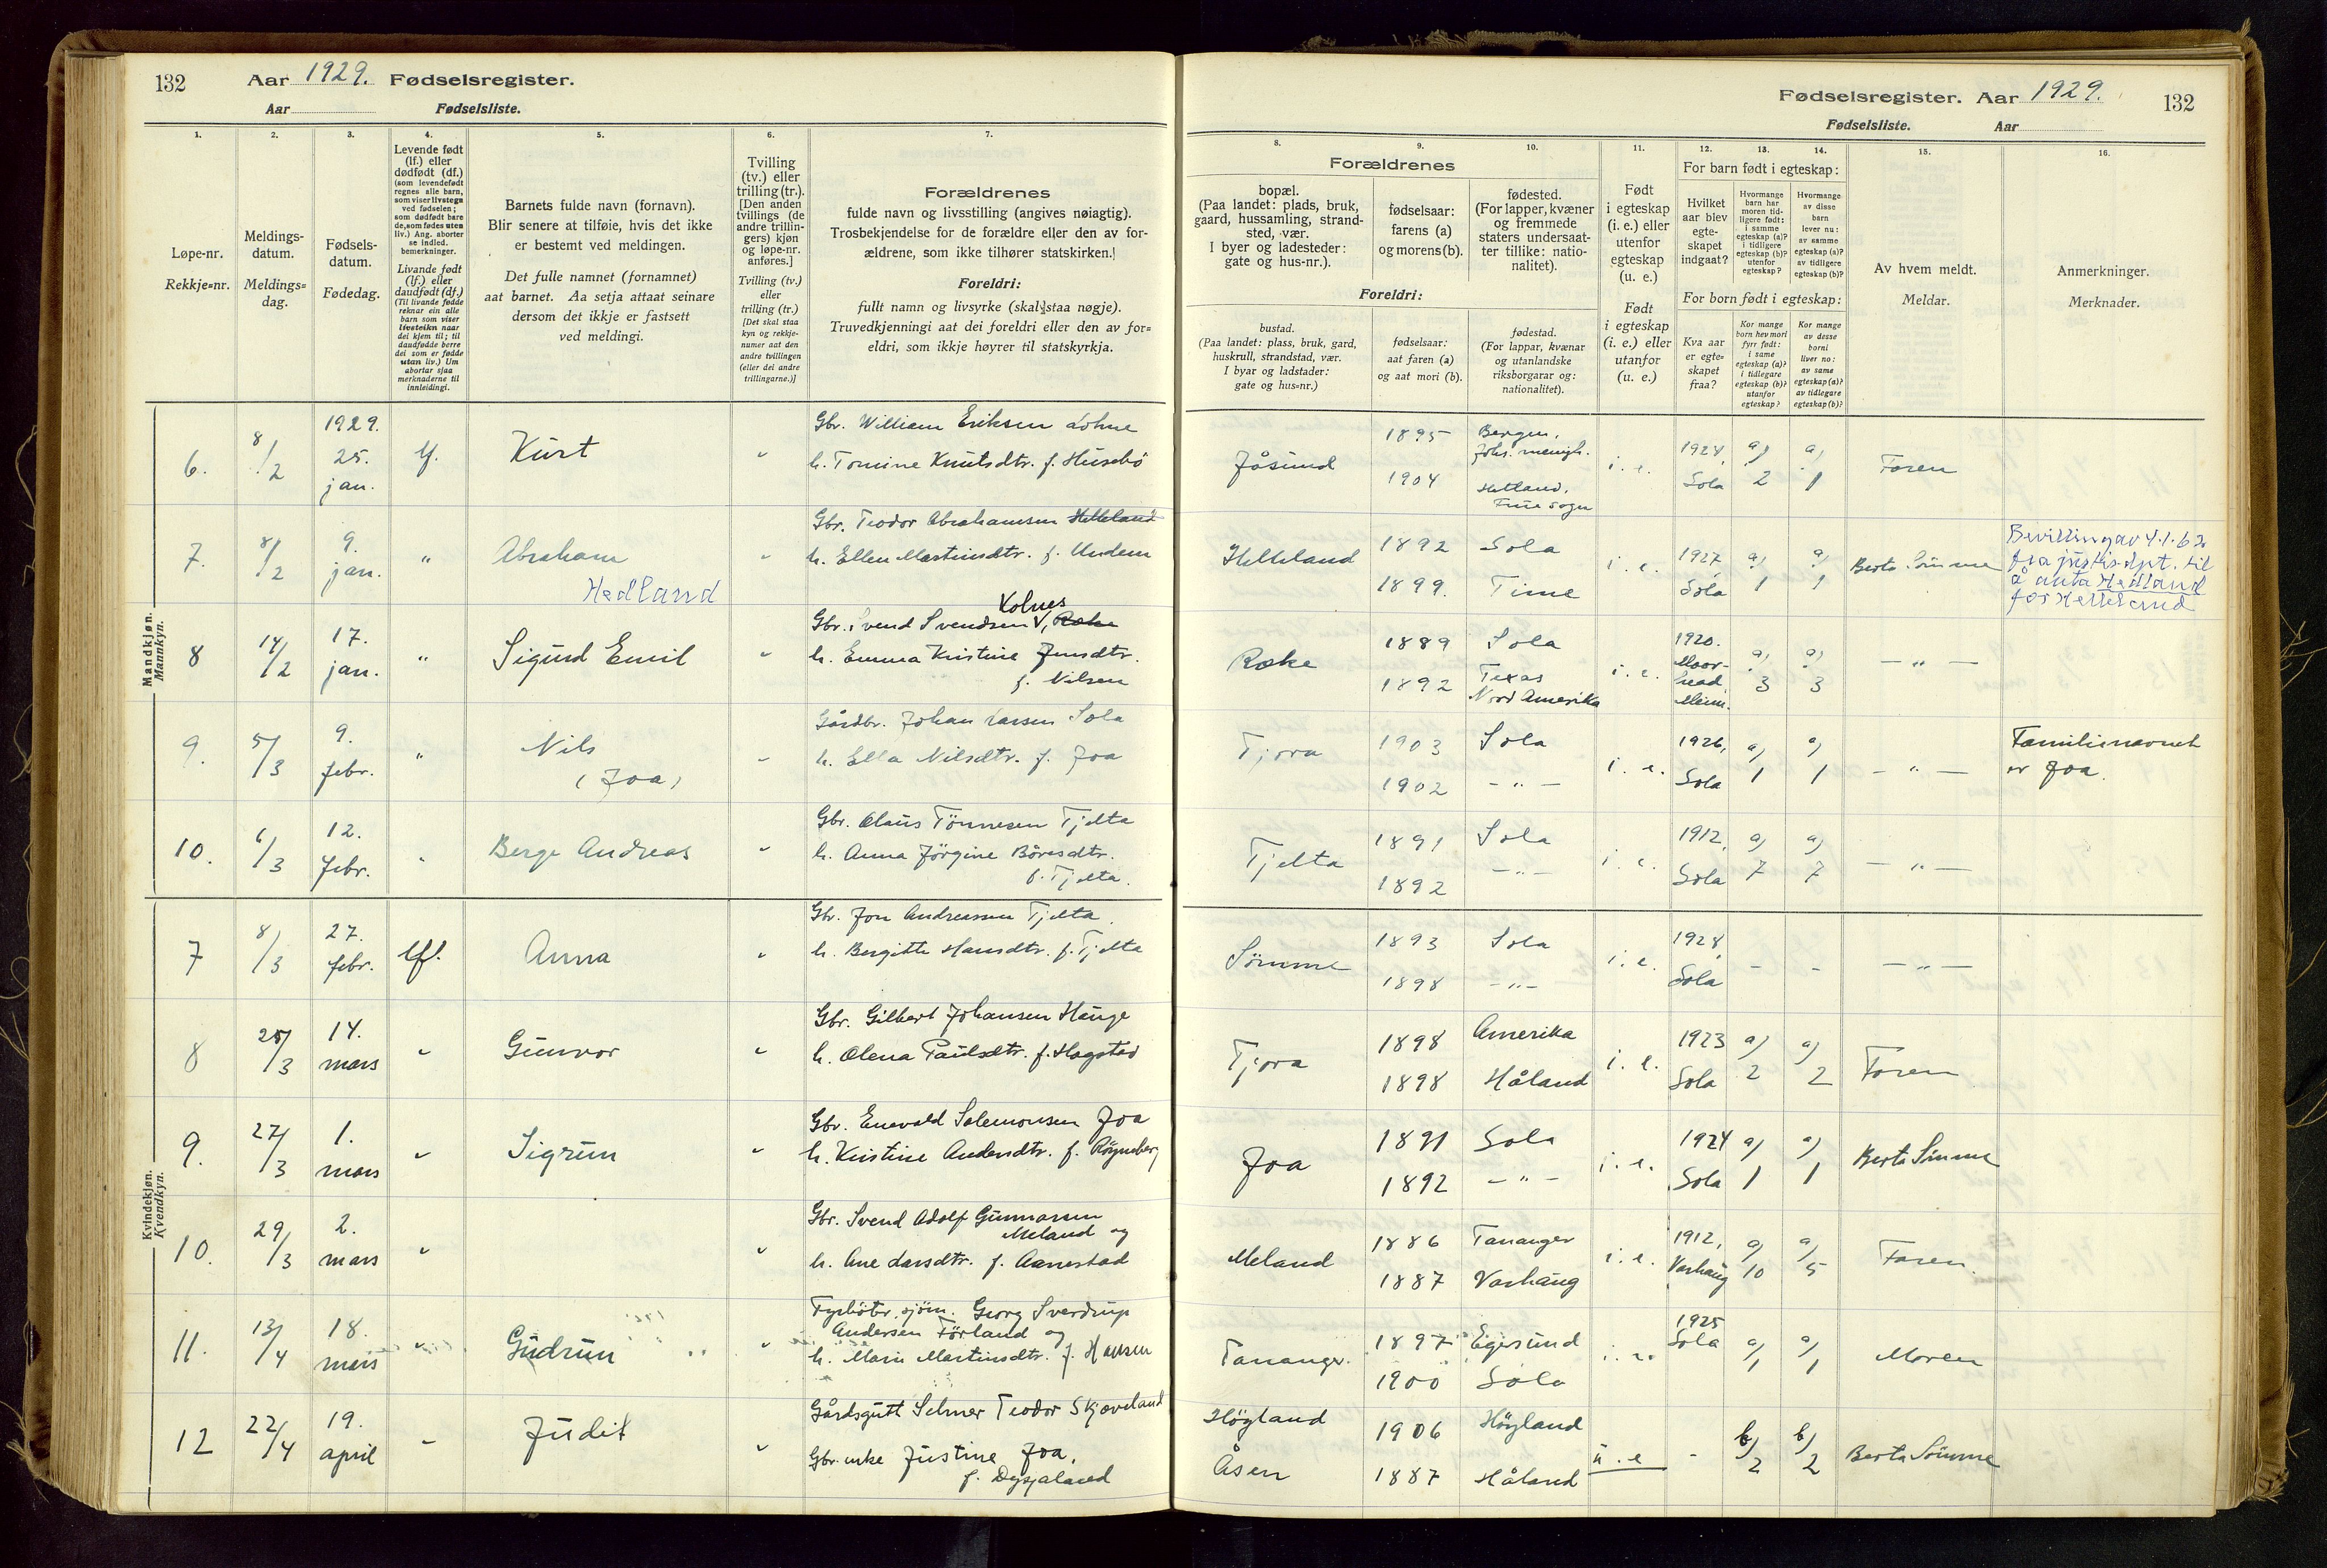 132 Aar 1929. Fødselsregister.
Aar Fødselsliste.
1. 2. 3. 4. 5. 6. 7.
Løpe-nr.
Rekkje=nr.
Meldings-
datum.
Meldings=
dag.
Fødsels-
datum.
Fødedag.
Levende født
(lf.) eller
dødfødt (df.)
(som levendefødt
regnes alle barn,
som viser livstegn
ved fødselen;
som dødfødt bare
de, som fødes uten
liv.) Ang. aborter
se indled.
bemerkninger.
Livande født
(lf.) eller
daudfødt (df.)
(Til livande fødde
reknar ein alle
barn som viser
livsteikn naar
dei kjem til; til
daudfødde berre
dei som er fødde
utan liv.) Um
abortar sjaa
merknaderne til
innleidingi.
Barnets fulde navn (fornavn).
Blir senere at tilføie, hvis det ikke
er bestemt ved meldingen.
Det fulle namnet (fornamnet)
aat barnet. Aa setja attaat seinare
dersom det ikkje er fastsett
ved meldingi.
Tvilling
(tv.) eller
trilling (tr.).
[Den anden
tvillings (de
andre trillin-
gers) kjøn
og løpe-nr.
anføres.]
Tvilling (tv.)
eller
trilling (tr.)
[Det skal staa
kyn og rekkje-
numer aat den
andre tvillingen
(eller dei andre
trillingarne.)]
Forældrenes
fulde navn og livsstilling (angives nøiagtig).
Trosbekjendelse for de forældre eller den av for-
ældrene, som ikke tilhører statskirken.
Foreldri:
fullt namn og livsyrke (skal staa nøgje).
Truvedkjenningi aat dei foreldri eller den av for=
eldri, som ikkje høyrer til statskyrkja.
Mandkjøn.
Mannkyn.
6. 8/2 1929. 25. jan. lf. Kurt "
Gbr. William Eriksen Lohne
h. Tomine Knutsdtr. f. Husebö
7. 8/2 9. jan. " Abraham "
Hedland
Gbr. Teodor Abrahamsen Helleland
h. Ellen Martinsdtr. f. Undem
8 14/2 17. jan. " Sigurd Emil "
Kolnes
Gbr. Svend Svendsen V, Røke
h. Emma Kristine Jensdtr.
f. Nilsen
9. 5/3 9. febr. " Nils "
(Joa)
Gårdbr. Johan Larsen Sola
h. Ella Nilsdtr. f. Joa
10. 6/3 12. febr. " Berge Andreas "
Gbr. Olaus Tönnesen Tjelta
h. Anna Jörgine Böresdtr.
f. Tjelta.
Kvindekjøn.
Kvendkyn.
7 8/3 27. febr. lf. Anna "
Gbr. Jon Andreassen Tjelta.
h. Bergitte Hansdtr. f. Tjelta
8 25/3 14. mars " Gunvor "
Gbr. Gilbert Johansen Hauge
h. Olena Paulsdtr. f. Hagstad
9. 27/3 1. mars " Sigrun "
Gbr. Enevald Salemonsen Joa
h. Kristine Andersdtr. f. Röyneberg
10. 29/3 2. mars " "
Gbr. Svend Adolf Gunnarsen
Meland og
h. Ane Larsdtr. f. Aanestad
11. 13/4 18. mars " Gudrun "
sjöm. Georg Sverdrup
Andersen Förland og
h. Marie Martinsdtr. f. Hansen
12 22/4 19. april " Judit "
Gårdsgutt Selmer Teodor Skjæveland
Gbr.enke Justine Joa,
f. Dysjaland
Fødselsregister. Aar 1929. 132
Fødselsliste. Aar
8. 9. 10. 11. 12. 13. 14. 15. 16.
Forældrenes
bopæl.
(Paa landet: plads, bruk,
gaard, hussamling, strand-
sted, vær.
I byer og ladesteder:
gate og hus-nr.).
fødselsaar:
farens (a)
og morens (b).
fødested.
(For lapper, kvæner
og fremmede
staters undersaat-
ter tillike: natio-
nalitet).
Foreldri:
bustad.
(Paa landet: plass, bruk, gard,
huskrull, strandstad, vær.
I byar og ladstader:
gate og hus=nr.)
fødselsaar:
aat faren (a)
og aat mori (b).
fødestad.
(For lappar, kvænar
og utanlandske
riksborgarar og:
nationalitet).
Født
i egteskap
(i. e.) eller
utenfor
egteskap
(u. e.)
Født
i egteskap
(i. e.) eller
utanfor
(u. e.)
For barn født i egteskap:
Hvilket
aar blev
egte-
skapet
indgaat?
Hvormange
barn har
moren tid-
ligere født:
i samme
egteskap (a)?
i tidligere
egteskap (b)?
utenfor
egteskap?
Hvormange
av disse
barn
lever nu:
av samme
egteskap (a)?
av tidligere
egteskap (b)?
For born født i egteskap:
Kva aar
er egte=
skapet
fraa?
Kor mange
born hev mori
fyrr født:
i same
egteskap (a)?
i tidlegare
egteskap (b)?
utanfor
egteskap?
Kor mange
av desse
borni
liver no:
av same
egteskap (a)?
av tidlegare
egteskap (b)?
Av hvem meldt.
Meldar.
Anmerkninger.
Merknader.
Jåsund 1895 Bergen, Johs. menigh. i. e. 1924, Sola a) 2 a) 1 Faren
1904 Hetland, Frue sogn
Helleland 1892 Sola i. e. 1927, Sola a) 1 a) 1 Berta Sömme
1899. Time
Bevilling av 4.1.62
fra justisdpt. til
å anta Hedland
for Helleland
Røke 1889 Sola i. e. 1920. Moor- head, Minn. a) 3 a) 3 — " —
1892 Texas Nord Amerika
Tjora 1903 Sola i. e. 1926, Sola a) 1 a) 1 — " —
1902 — " —
Familienavnet
er Joa.
Tjelta 1891 Sola i. e. 1912, Sola a) 7 a) 7 — " —
1892 — " —
Sömme 1893 Sola i. e. 1928, Sola - - — " —
1898 — " —
Tjora 1898 Amerika i. e. 1923 Sola a) 2 a) 2 Faren
1898 Håland
Joa 1891 Sola i. e. 1924 Sola a) 1 a) 1 Berta Sömme
1892 — " —
Meland 1886 Tananger i. e. 1912, Varhaug a) 10 a) 5 Faren.
1887 Varhaug
Tananger. 1897 Egersund i. e. 1925 Sola a) 1 a) 1 Moren
1900 Sola
Högland 1906 Högland u. e - b) 2 b) 2 Berta Sömme
Åsen 1887 Håland